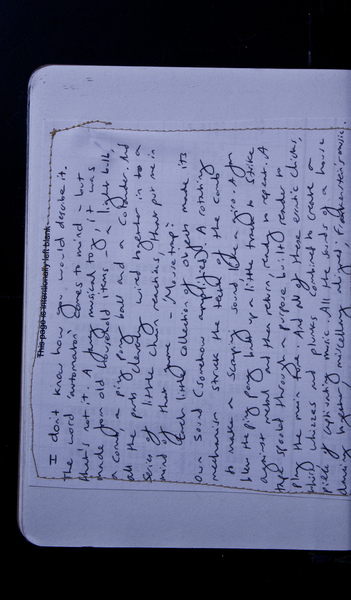 This page is intentionally left blank
I don't know how you would describe it.
The word 'automation' comes to mind - but
that's not it. A funny musical toy, it was
made from old household items - a light bulb,
a comb, a ping pong ball and a colander. And
all the parts cleverly wired together in to a
series of little chain reactions, that put me in
mind of that game - 'Mousetrap'.
Each little collection of objects made its
own sound (somehow amplified). A rotating
mechanism struck the teeth of the comb
to make a scraping sound, like a giro. A fan
blew the ping pong ball up a little track to strike
against metal and then return, ready to repeat. A
tape spooled through a purpose built reader to
play the main tune. And all of these erratic clicks,
whizzes and plunks combined to create a
piece of captivating music. All the sounds of a house
dancing together, miscellany aligned,